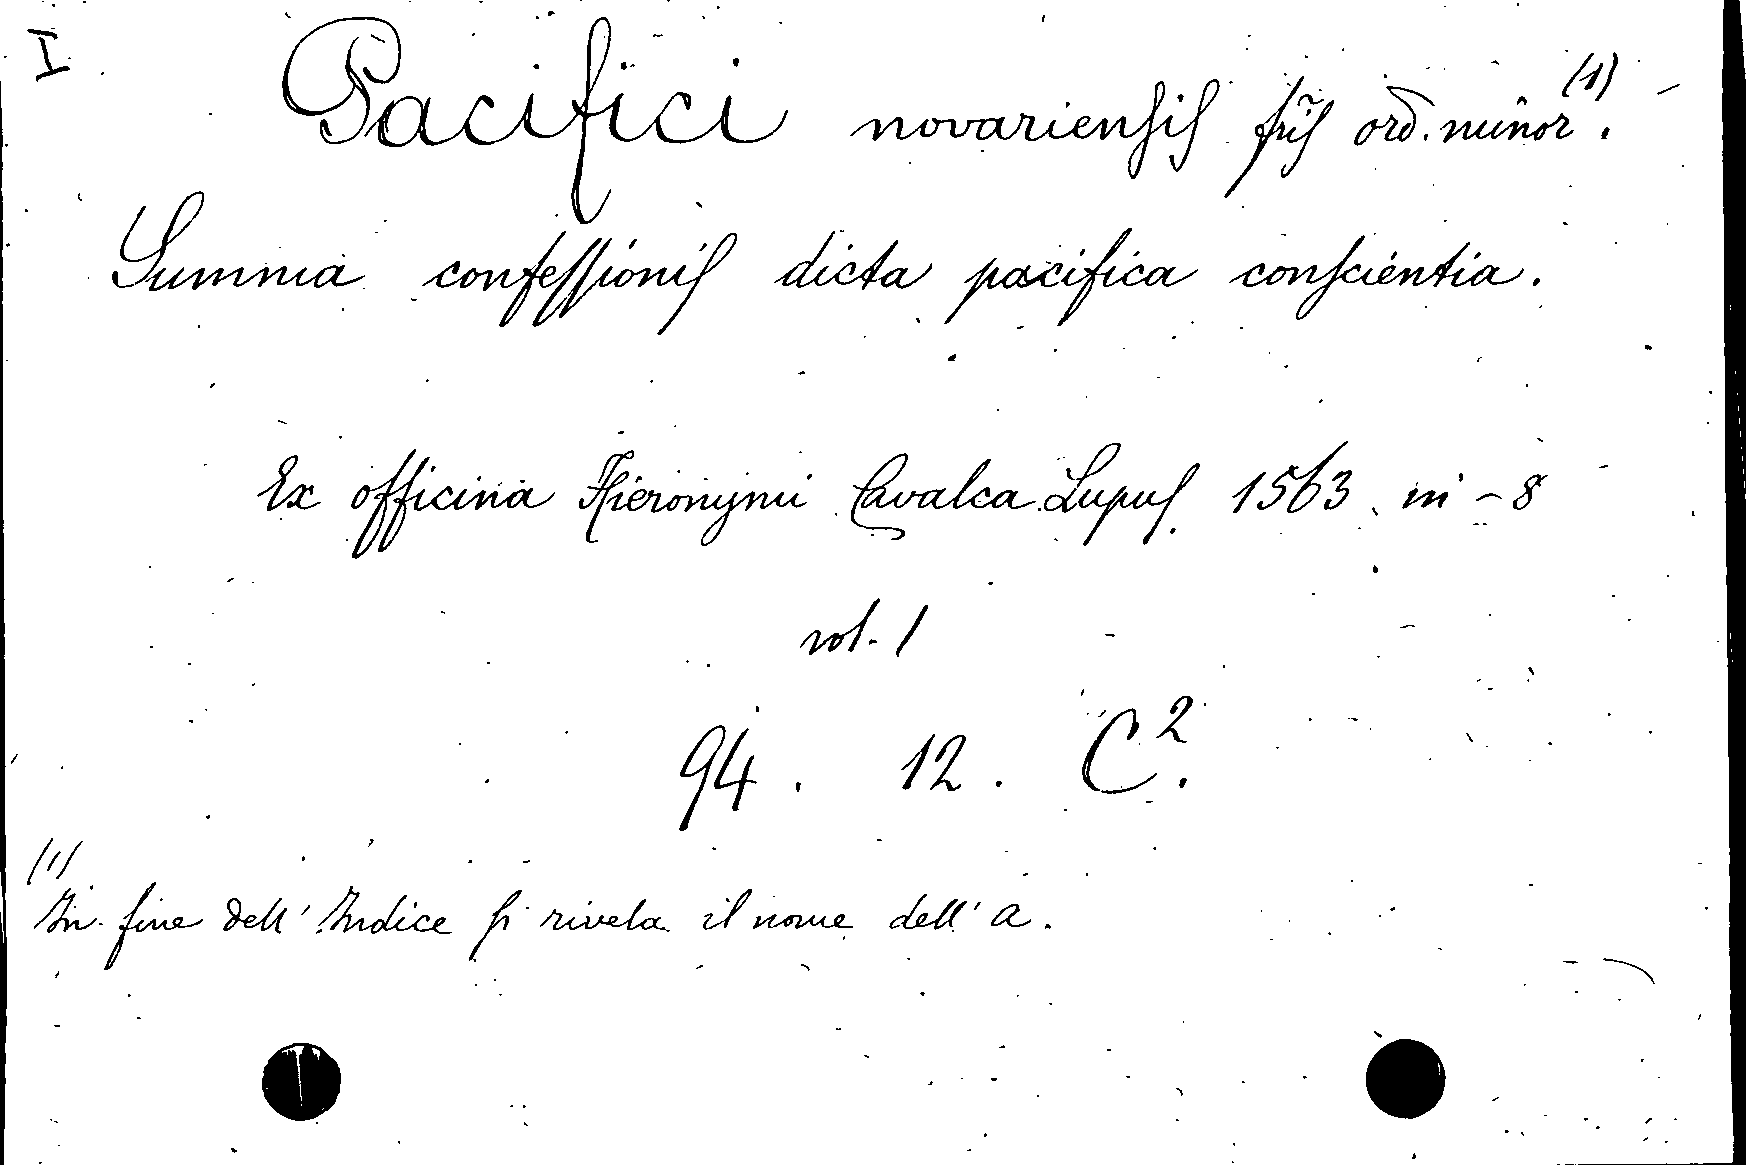 I
Pacifici novariensis fr̃is ord̄. minor (1).
Summa confessionis dicta pacifica conscientia.
Ex officina Hieronymi Cavalca Lupus 1563 in-8
vol. 1
94. 12. C².
(1)
In fine dell' Indice si rivela il nome dell' a.